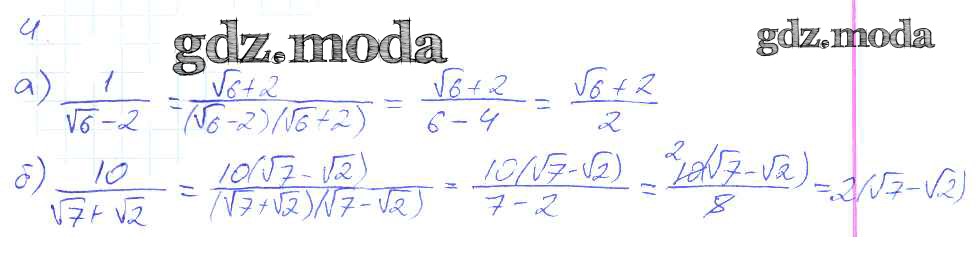 4.
gdz.moda gdz.moda
а) 1/(√6-2) = (√6+2)/((√6-2)(√6+2)) = (√6+2)/(6-4) = (√6+2)/2
б) 10/(√7+√2) = 10(√7-√2)/((√7+√2)(√7-√2)) = 10(√7-√2)/(7-2) = 2 10(√7-√2)/5 = 2(√7-√2)